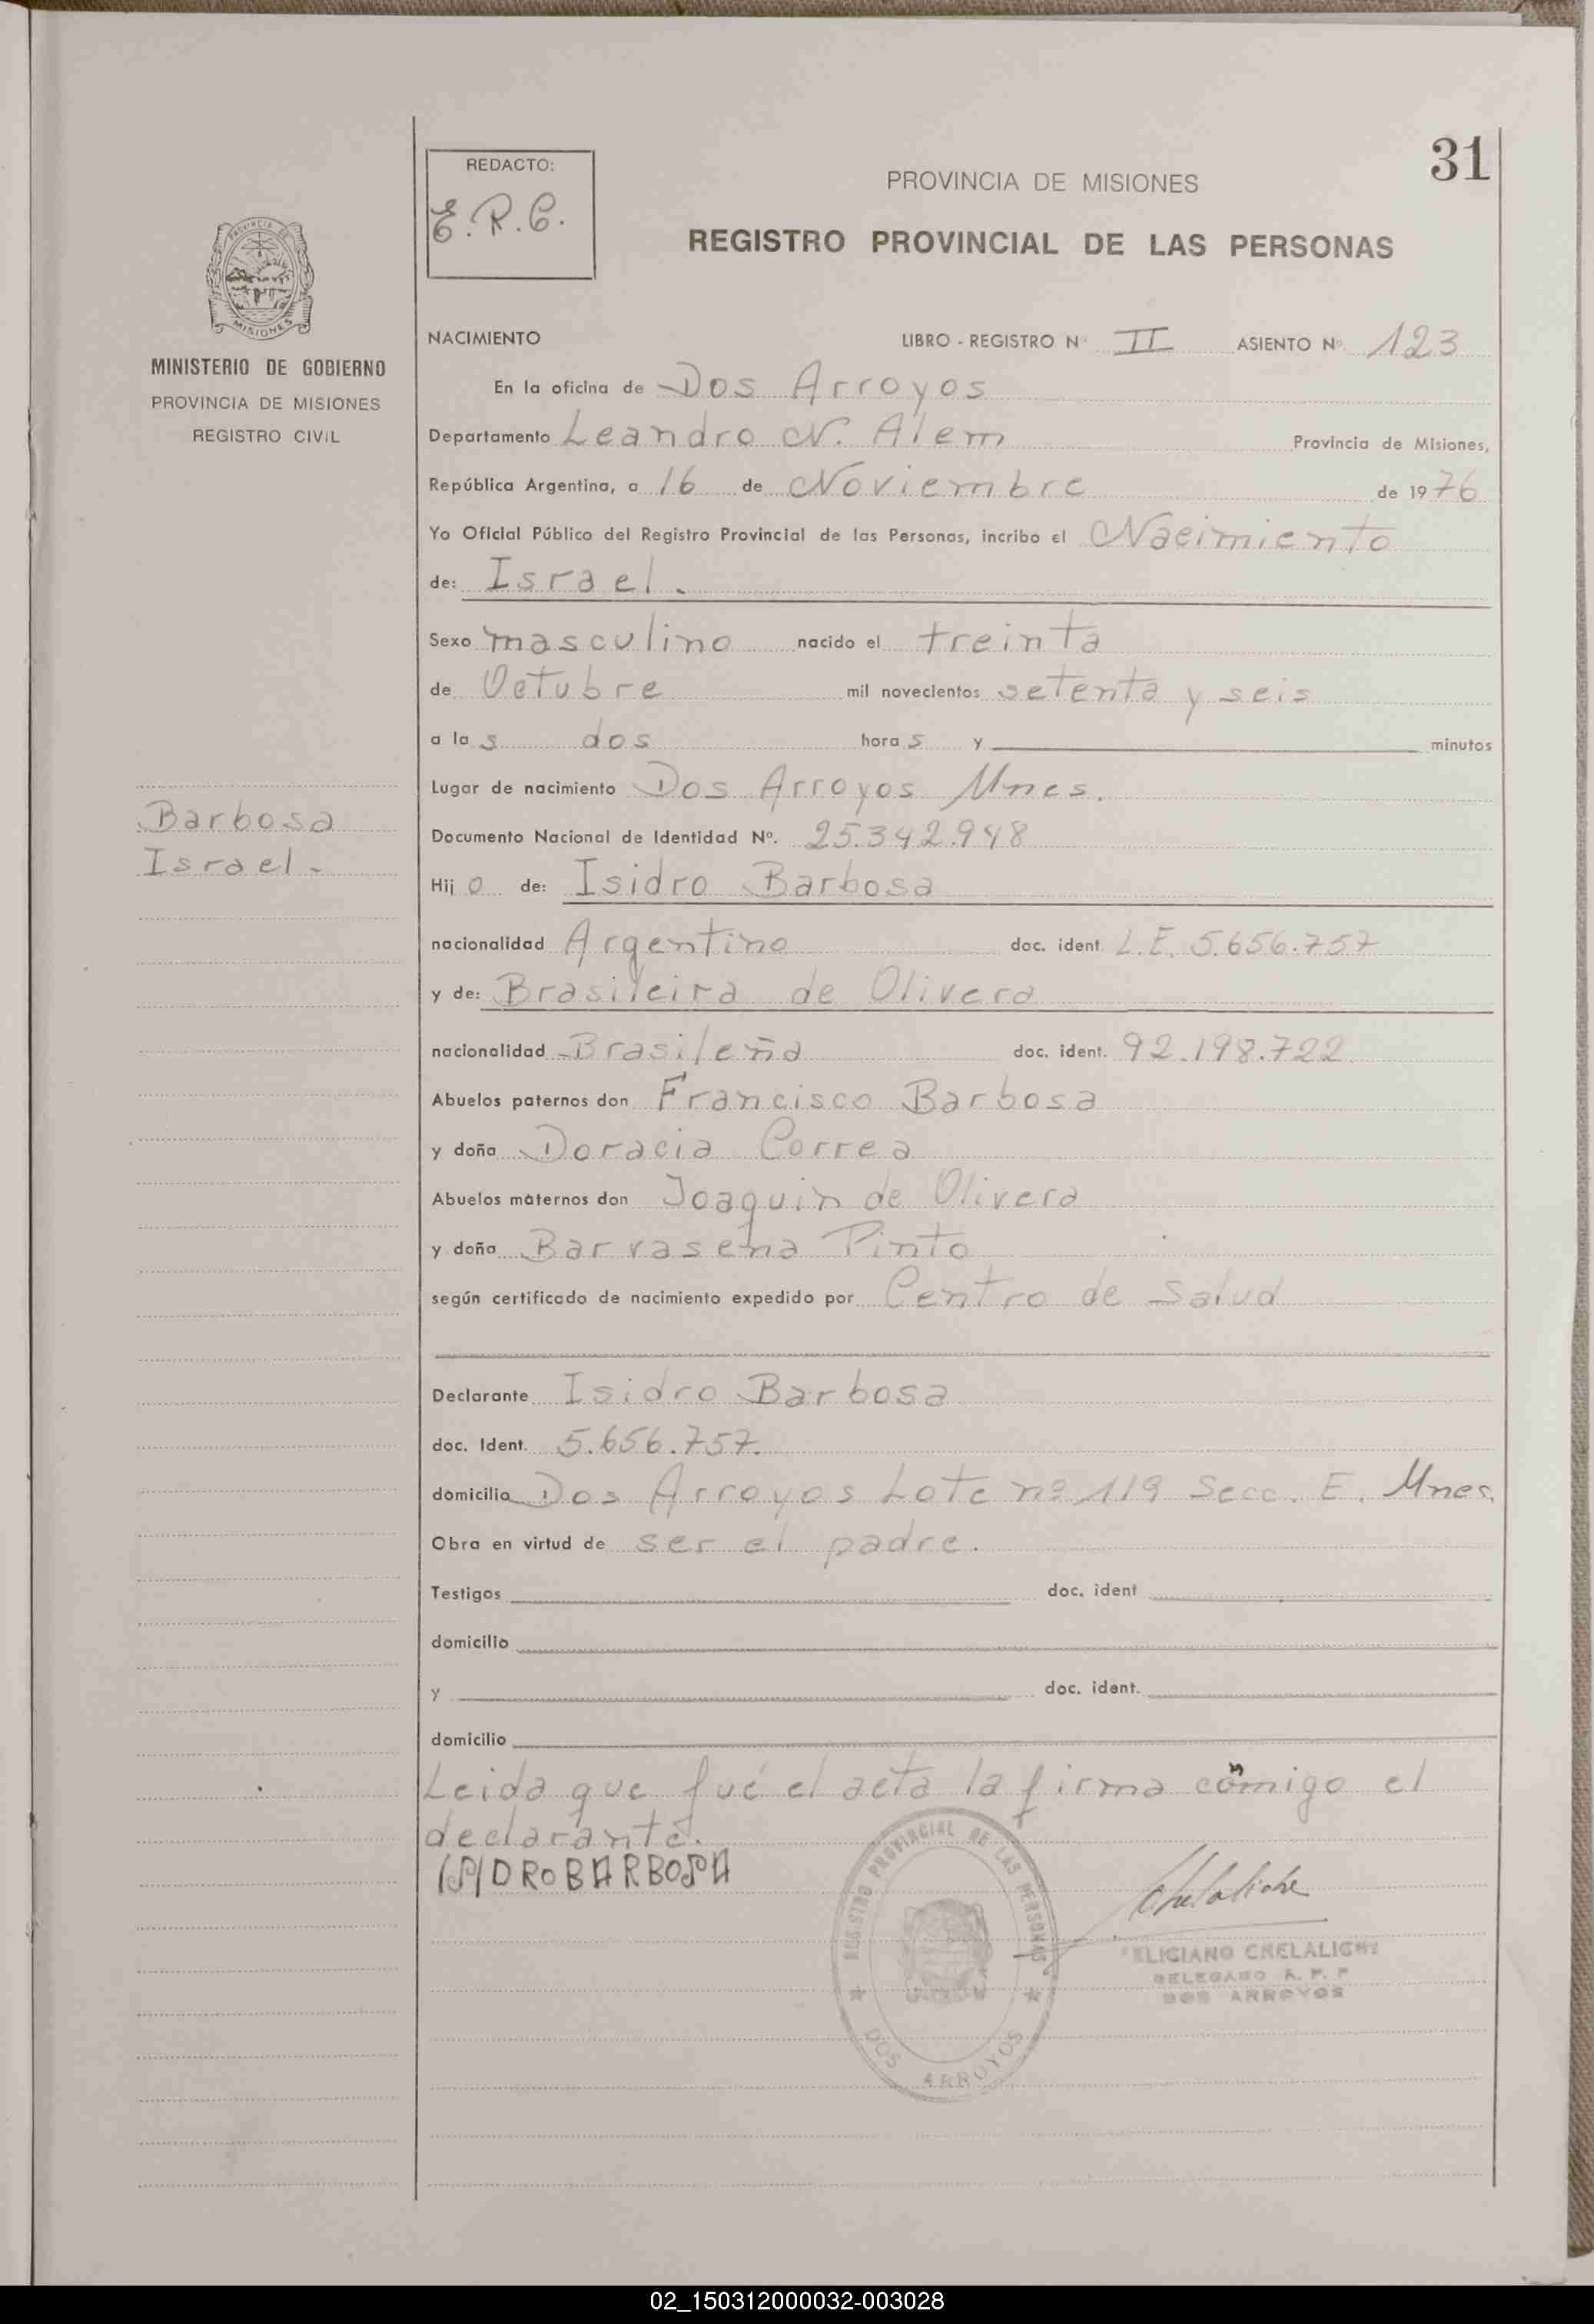 31
REDACTO:
E.R.C.
PROVINCIA DE MISIONES
REGISTRO PROVINCIAL DE LAS PERSONAS
PROVINCIA DE
MISIONES
MINISTERIO DE GOBIERNO
PROVINCIA DE MISIONES
REGISTRO CIVIL
NACIMIENTO LIBRO - REGISTRO Nº II ASIENTO Nº 123
En la oficina de Dos Arroyos
Departamento Leandro N. Alem Provincia de Misiones,
República Argentina, a 16 de Noviembre de 1976
Yo Oficial Público del Registro Provincial de las Personas, incribo el Nacimiento
de: Israel.
Sexo masculino nacido el treinta
de Octubre mil novecientos setenta y seis
a las dos horas y minutos
Lugar de nacimiento Dos Arroyos Mnes.
Barbosa
Israel.-
Documento Nacional de Identidad Nº. 25.342.948
Hijo de: Isidro Barbosa
nacionalidad Argentino doc. ident. L.E. 5.656.757
y de: Brasileira de Olivera
nacionalidad Brasileña doc. ident. 92.198.722
Abuelos paternos don Francisco Barbosa
y doña Doracia Correa
Abuelos maternos don Joaquin de Olivera
y doña Barrasena Pinto
según certificado de nacimiento expedido por Centro de Salud
Declarante Isidro Barbosa
doc. Ident. 5.656.757.
domicilio Dos Arroyos Lote nº 119 Secc. E. Mnes.
Obra en virtud de ser el padre.
Testigos doc. ident
domicilio
y doc. ident.
domicilio
Leida que fué el acta la firma conmigo el
declarante.
ISIDRO BARBOSA
REGISTRO PROVINCIAL DE LAS PERSONAS
DOS ARROYOS
Chelaliche
FELICIANO CHELALICHE
DELEGADO R. P. P
DOS ARROYOS
02_150312000032-003028